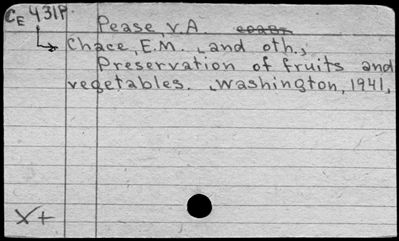 CE 431P.
Pease, V.A.
Chace, E.M. , and oth.,
Preservation of fruits and
vegetables. , Washington, 1941,
X+